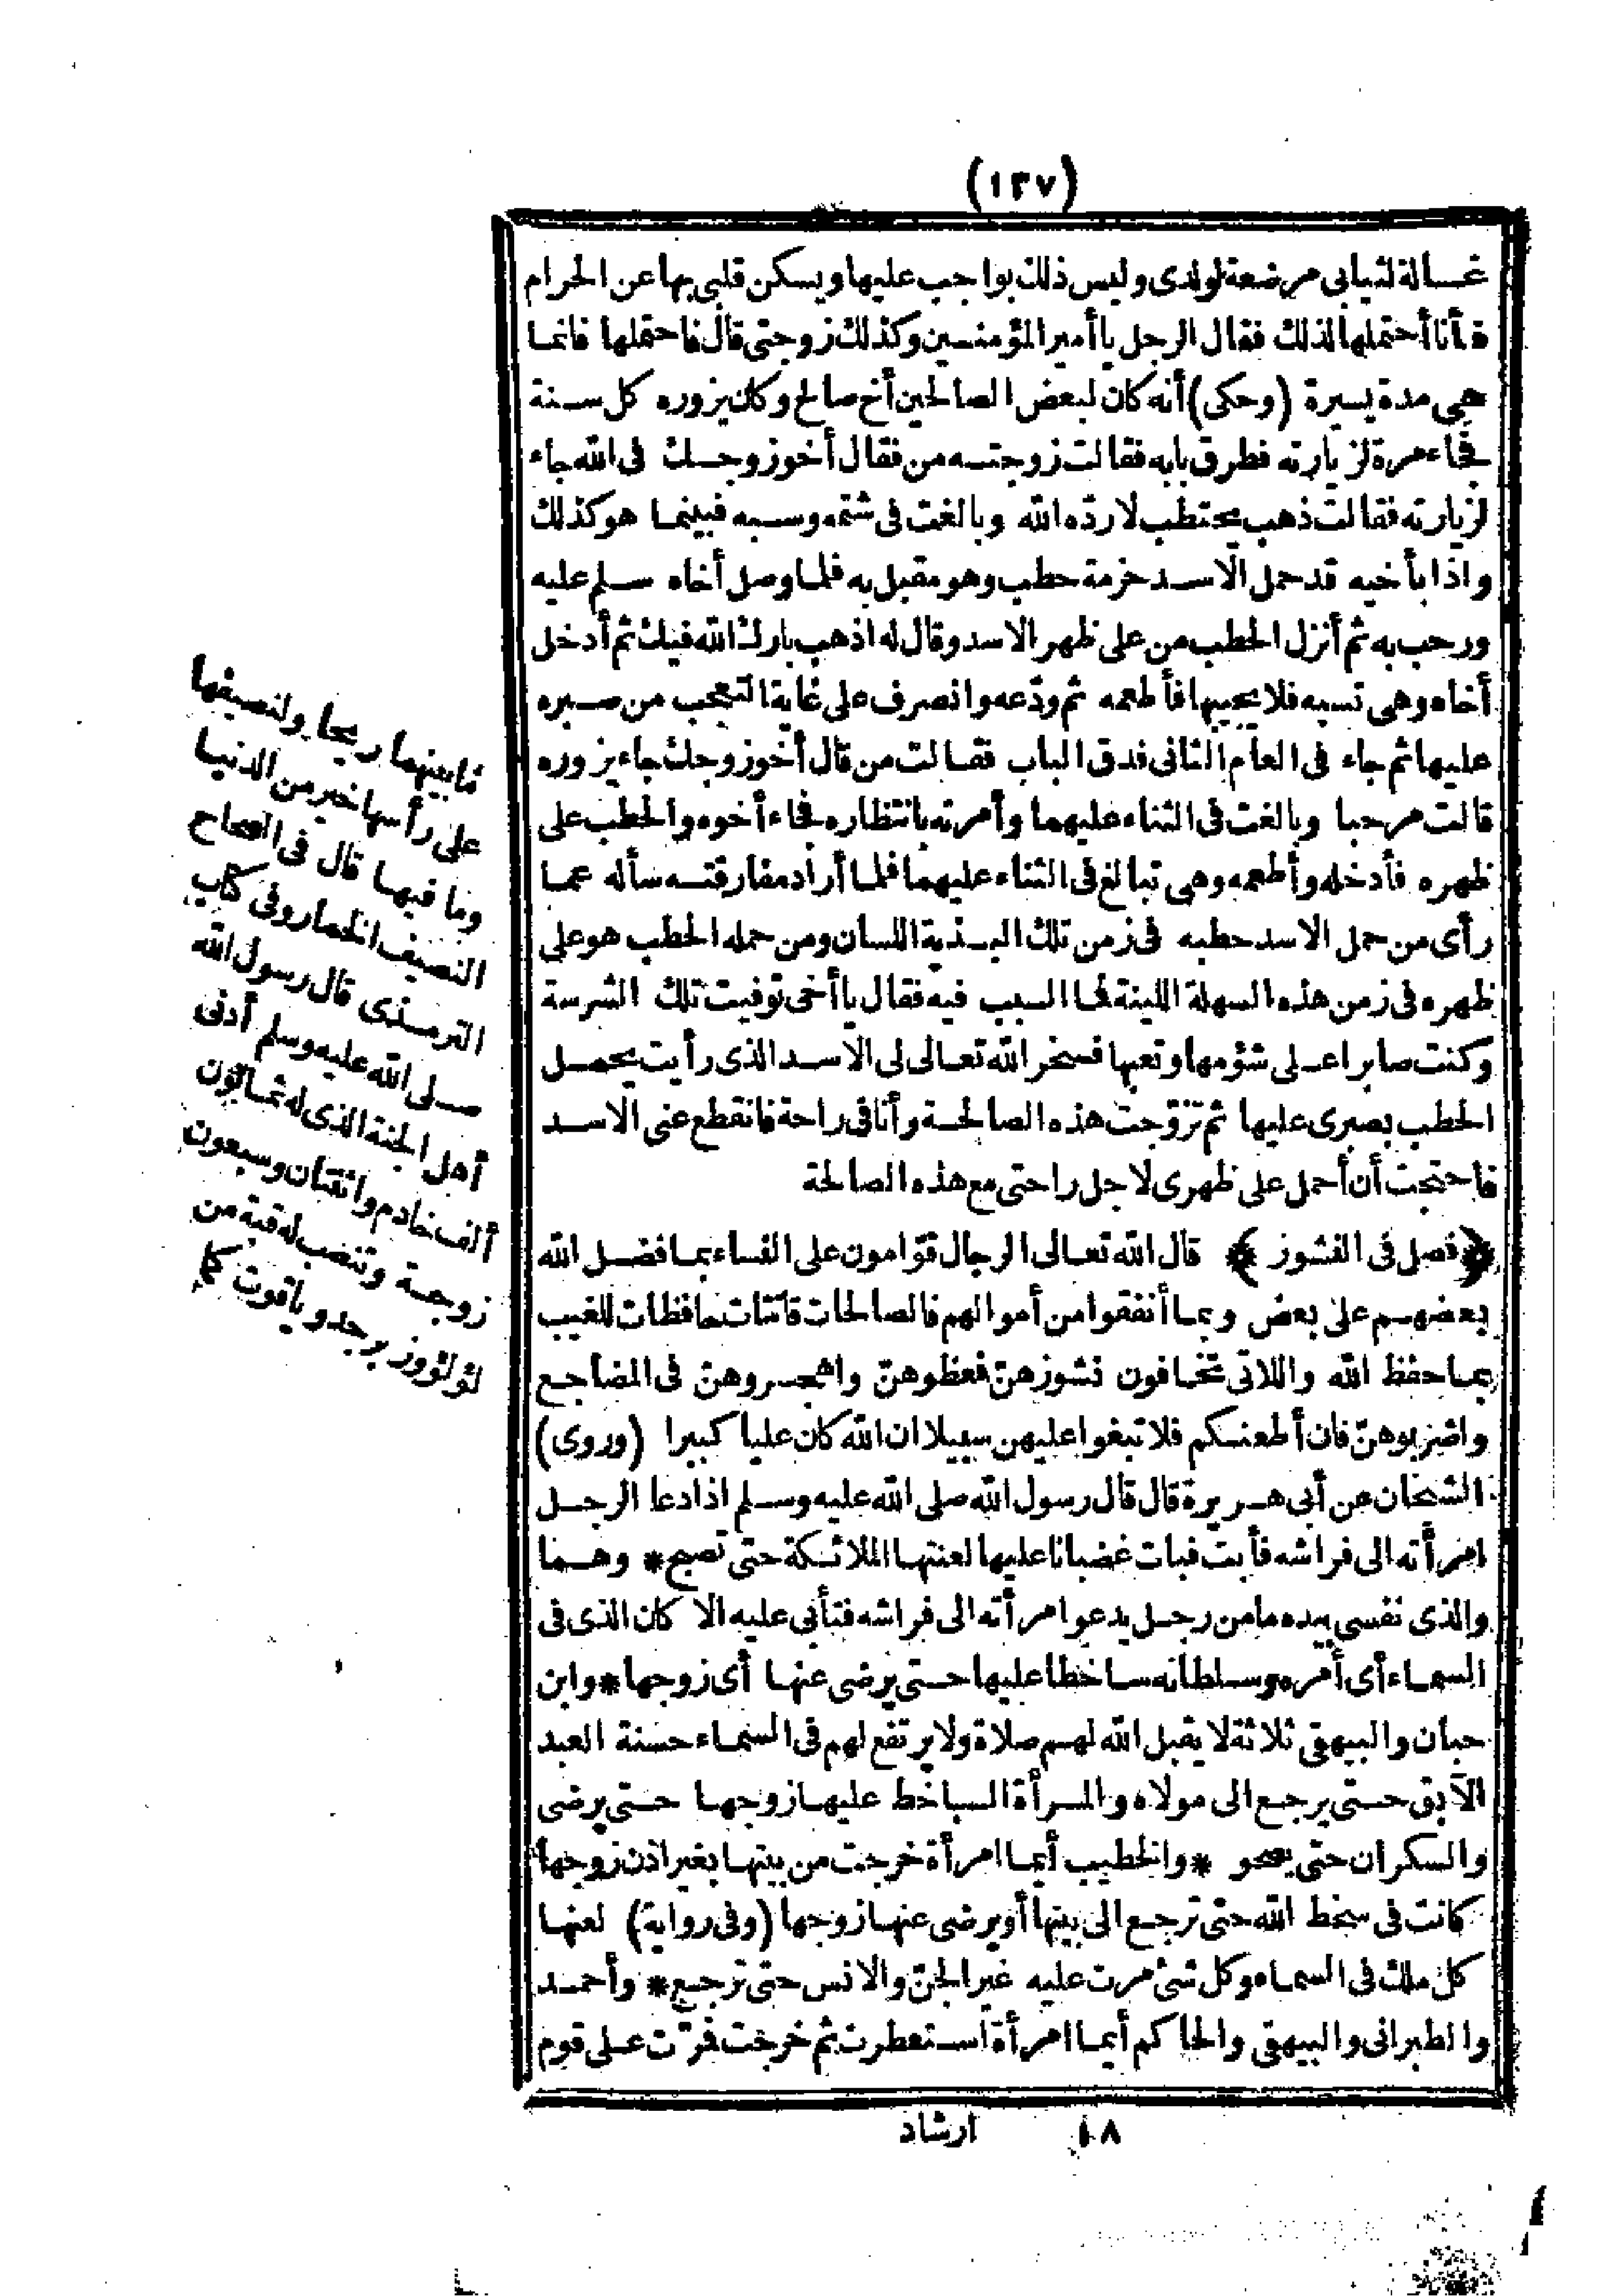 (١٣٧)
غسالة لثيابى مرضعة لولدى وليس ذلك بواجب عليها ويسكن قلبى بها عن الحرام
فأنا أحتملها لذلك فقال الرجل يا أمير المؤمنين وكذلك زوجتى قال فاحتملها فانما
هى مدة يسيرة (وحكى) أنه كان لبعض الصالحين أخ صالح وكان يزوره كل سنة
فجاء مرة لزيارته فطرق بابه فقالت زوجته من فقال أخو زوجك فى الله جاء
لزيارته فقالت ذهب يحتطب لا ردّه الله وبالغت فى شتمه وسبه فبينما هو كذلك
واذا بأخيه قد حمل الاسد حزمة حطب وهو مقبل به فلما وصل أخاه سلم عليه
ورحب به ثم أنزل الحطب من على ظهر الاسد وقال له اذهب بارك الله فيك ثم أدخل
أخاه وهى تسبه فلا يجيبها فأطعمه ثم ودّعه وانصرف على غاية التعجب من صبره
عليها ثم جاء فى العام الثانى فدق الباب فقالت من قال أخو زوجك جاء يزوره
قالت مرحبا وبالغت فى الثناء عليهما وأمرته بانتظاره فجاء أخوه والحطب على
ظهره فأدخله وأطعمه وهى تبالغ فى الثناء عليهما فلما أراد مفارقته سأله عما
رأى من حمل الاسد حطبه فى زمن تلك البذية اللسان ومن حمله الحطب هو على
ظهره فى زمن هذه السهلة اللينة فما السبب فيه فقال يا أخى توفيت تلك الشرسة
وكنت صابرا على شؤمها وتعبها فسخر الله تعالى لى الاسد الذى رأيت يحمل
الحطب بصبرى عليها ثم تزوّجت هذه الصالحة وأنا فى راحة فانقطع عنى الاسد
فاحتجت أن أحمل على ظهرى لاجل راحتى مع هذه الصالحة
﴿فصل فى النشوز﴾ قال الله تعالى الرجال قوّامون على النساء بما فضل الله
بعضهم على بعض وبما أنفقوا من أموالهم فالصالحات قانتات حافظات للغيب
بما حفظ الله واللاتى تخافون نشوزهنّ فعظوهنّ واهجروهنّ فى المضاجع
واضربوهنّ فان أطعنكم فلا تبغوا عليهن سبيلا ان الله كان عليا كبيرا (وروى)
الشيخان عن أبى هريرة قال قال رسول الله صلى الله عليه وسلم اذا دعا الرجل
امرأته الى فراشه فأبت فبات غضبانا عليها لعنتها الملائكة حتى تصبح * وهما
والذى نفسى بيده ما من رجل يدعو امرأته الى فراشه فتأبى عليه الا كان الذى فى
السماء أى أمره وسلطانه ساخطا عليها حتى يرضى عنها أى زوجها * وابن
حبان والبيهقى ثلاثة لا يقبل الله لهم صلاة ولا يرتفع لهم فى السماء حسنة العبد
الآبق حتى يرجع الى مولاه والمرأة الساخط عليها زوجها حتى يرضى
والسكران حتى يصحو * والخطيب أيما امرأة خرجت من بيتها بغير اذن زوجها
كانت فى سخط الله حتى ترجع الى بيتها أو يرضى عنها زوجها (وفى رواية) لعنها
كل ملك فى السماء وكل شئ مرت عليه غير الجنّ والانس حتى ترجع * وأحمد
والطبرانى والبيهقى والحاكم أيما امرأة استعطرت ثم خرجت فمرّت على قوم
مابينهما ريحا ولنصيفها
على رأسها خير من الدنيا
وما فيها قال فى الصحاح
النصيف الخمار وفى كتاب
الترمذى قال رسول الله
صلى الله عليه وسلم أدنى
أهل الجنة الذى له ثمانون
ألف خادم واثنتان وسبعون
زوجة وتنصب له قبة من
لؤلؤ وزبرجد وياقوت كما
١٨ ارشاد